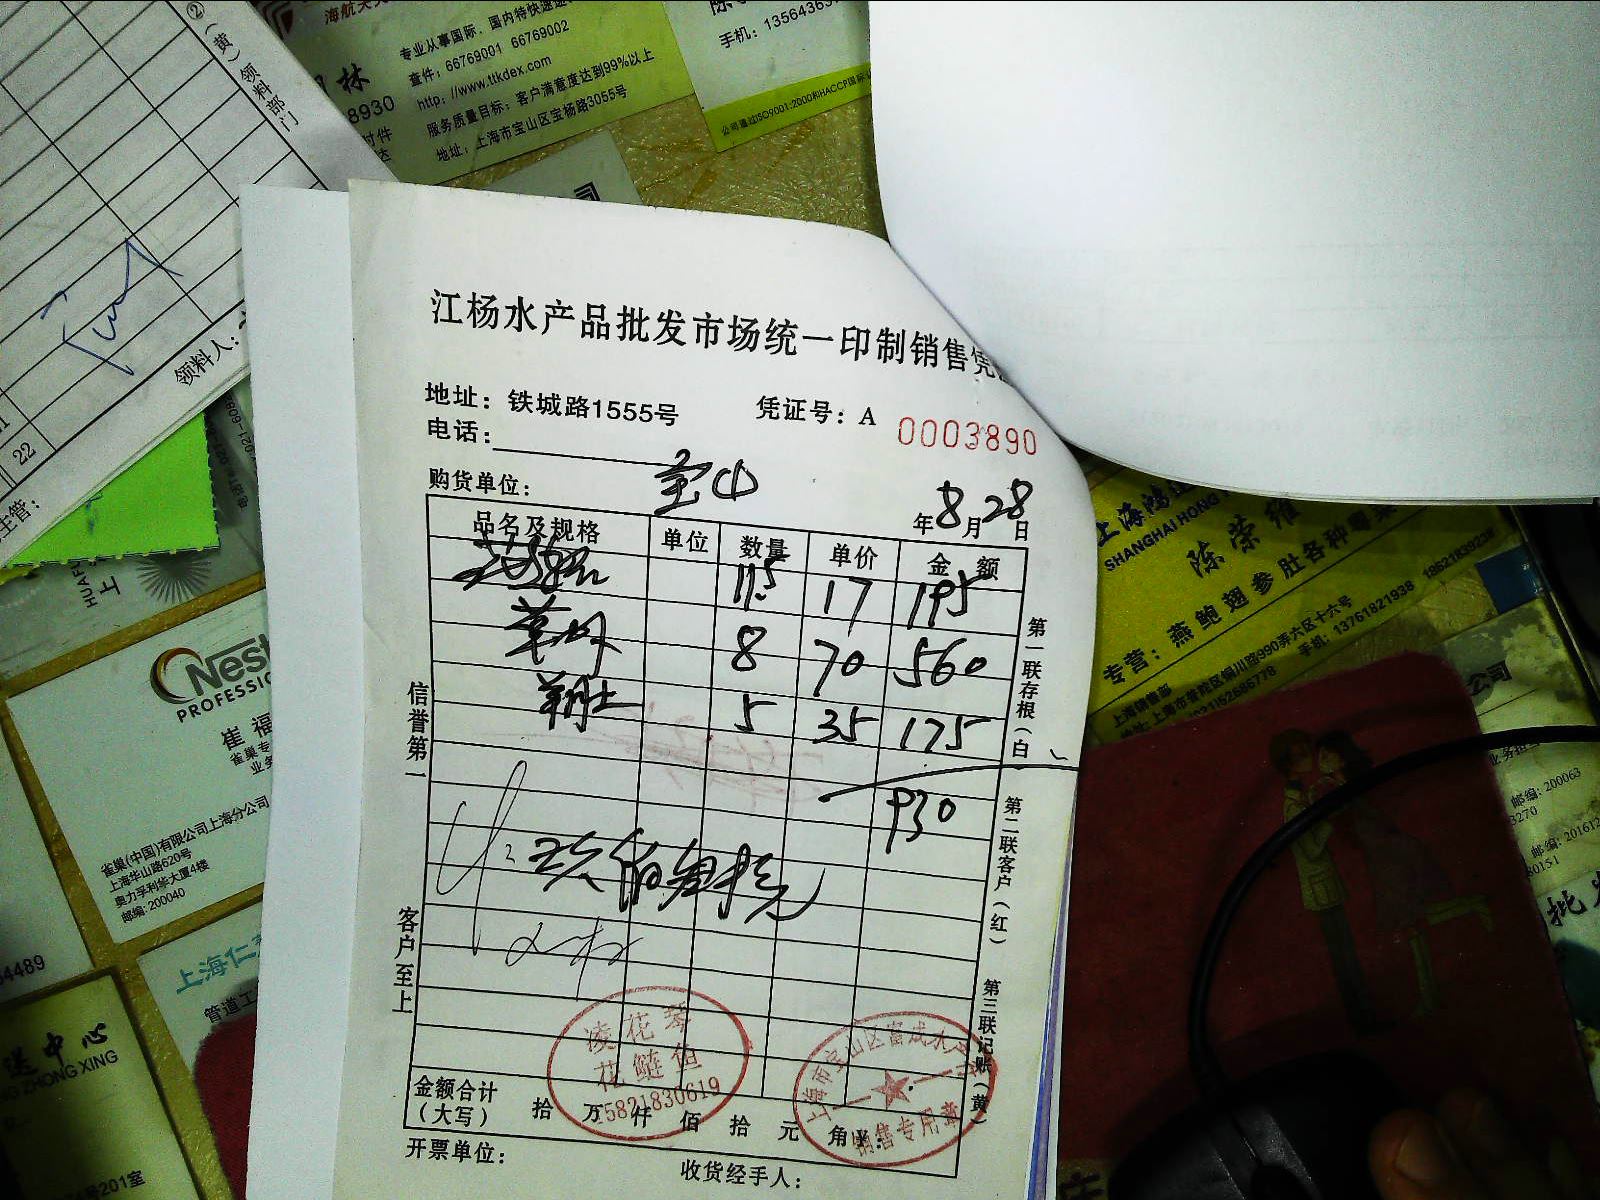 ②(黄)领料部门
领料人:
22
主管:
林
8930
专业从事国际、国内特快速递
查件: 66769001 66769002
http://www.ttkdex.com
服务质量目标: 客户满意度达到99%以上
地址: 上海市宝山区宝杨路3055号
手机: 1356436
公司通过ISO9001:2000和HACCP国际
江杨水产品批发市场统一印制销售凭
地址: 铁城路1555号
凭证号: A 0003890
电话:
购货单位: 宝山
年8月28日
品名及规格 单位 数量 单价 金额
11.5 17 195
草 8 70 560
5 35 175
930
玖佰叁拾元
金额合计(大写) 拾 万 仟 佰 拾 元 角
开票单位:
收货经手人:
信誉第一
客户至上
第一联存根(白)
第二联客户(红)
第三联记账(黄)
凌花琴
花鲢鱼
15821830619
上海市宝山区富斌水
销售专用章
上海鸿
SHANGHAI HONG
陈荣维
专营: 燕鲍翅参肚各种
上海销售部
地址: 上海市普陀区铜川路990弄六区十六号
手机: 13761821938 18621839238
Nest
PROFESSIO
崔福
雀巢专
业务
雀巢(中国)有限公司上海分公司
上海华山路620号
奥力孚利华大厦4楼
邮编: 200040
上海仁
管道工
4489
送中心
NG ZHONG XING
201室
公司
邮编: 200063
3270
邮编: 201612
80151
批发